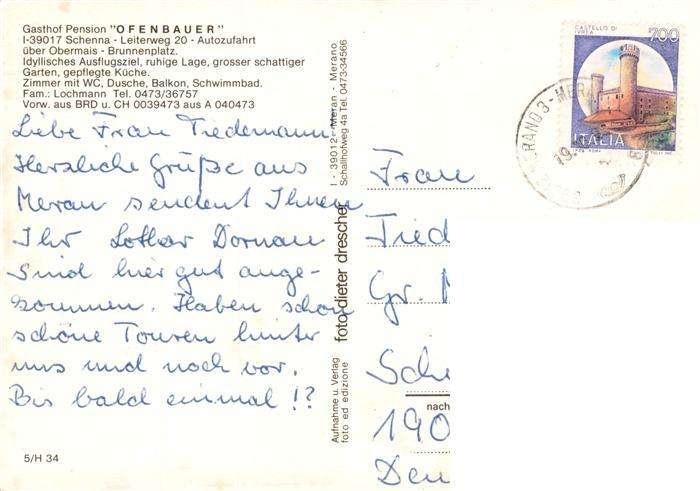 Gasthof Pension "OFENBAUER"
I-39017 Schenna - Leiterweg 20 - Autozufahrt
über Obermais - Brunnenplatz.
Idyllisches Ausflugsziel, ruhige Lage, grosser schattiger
Garten, gepflegte Küche.
Zimmer mit WC, Dusche, Balkon, Schwimmbad.
Fam.: Lochmann Tel. 0473/36757
Vorw. aus BRD u. CH 0039473 aus A 040473
Liebe Frau Tiedemann
Herzliche Grüße aus
Meran sendent Ihnen
Ihr Lothar Dornau
Sind hier gut ange-
kommen. Haben schon
schöne Touren hinter
uns und noch vor.
Bis bald einmal !?
5/H 34
I - 39012 - Meran - Merano
Schallhofweg 4a Tel. 0473-34566
foto dieter drescher
Aufnahme u. Verlag
foto ed edizione
CASTELLO DI
IVREA
700
ITALIA
Frau
Tied
Gr.
Sch
nach
190
Den